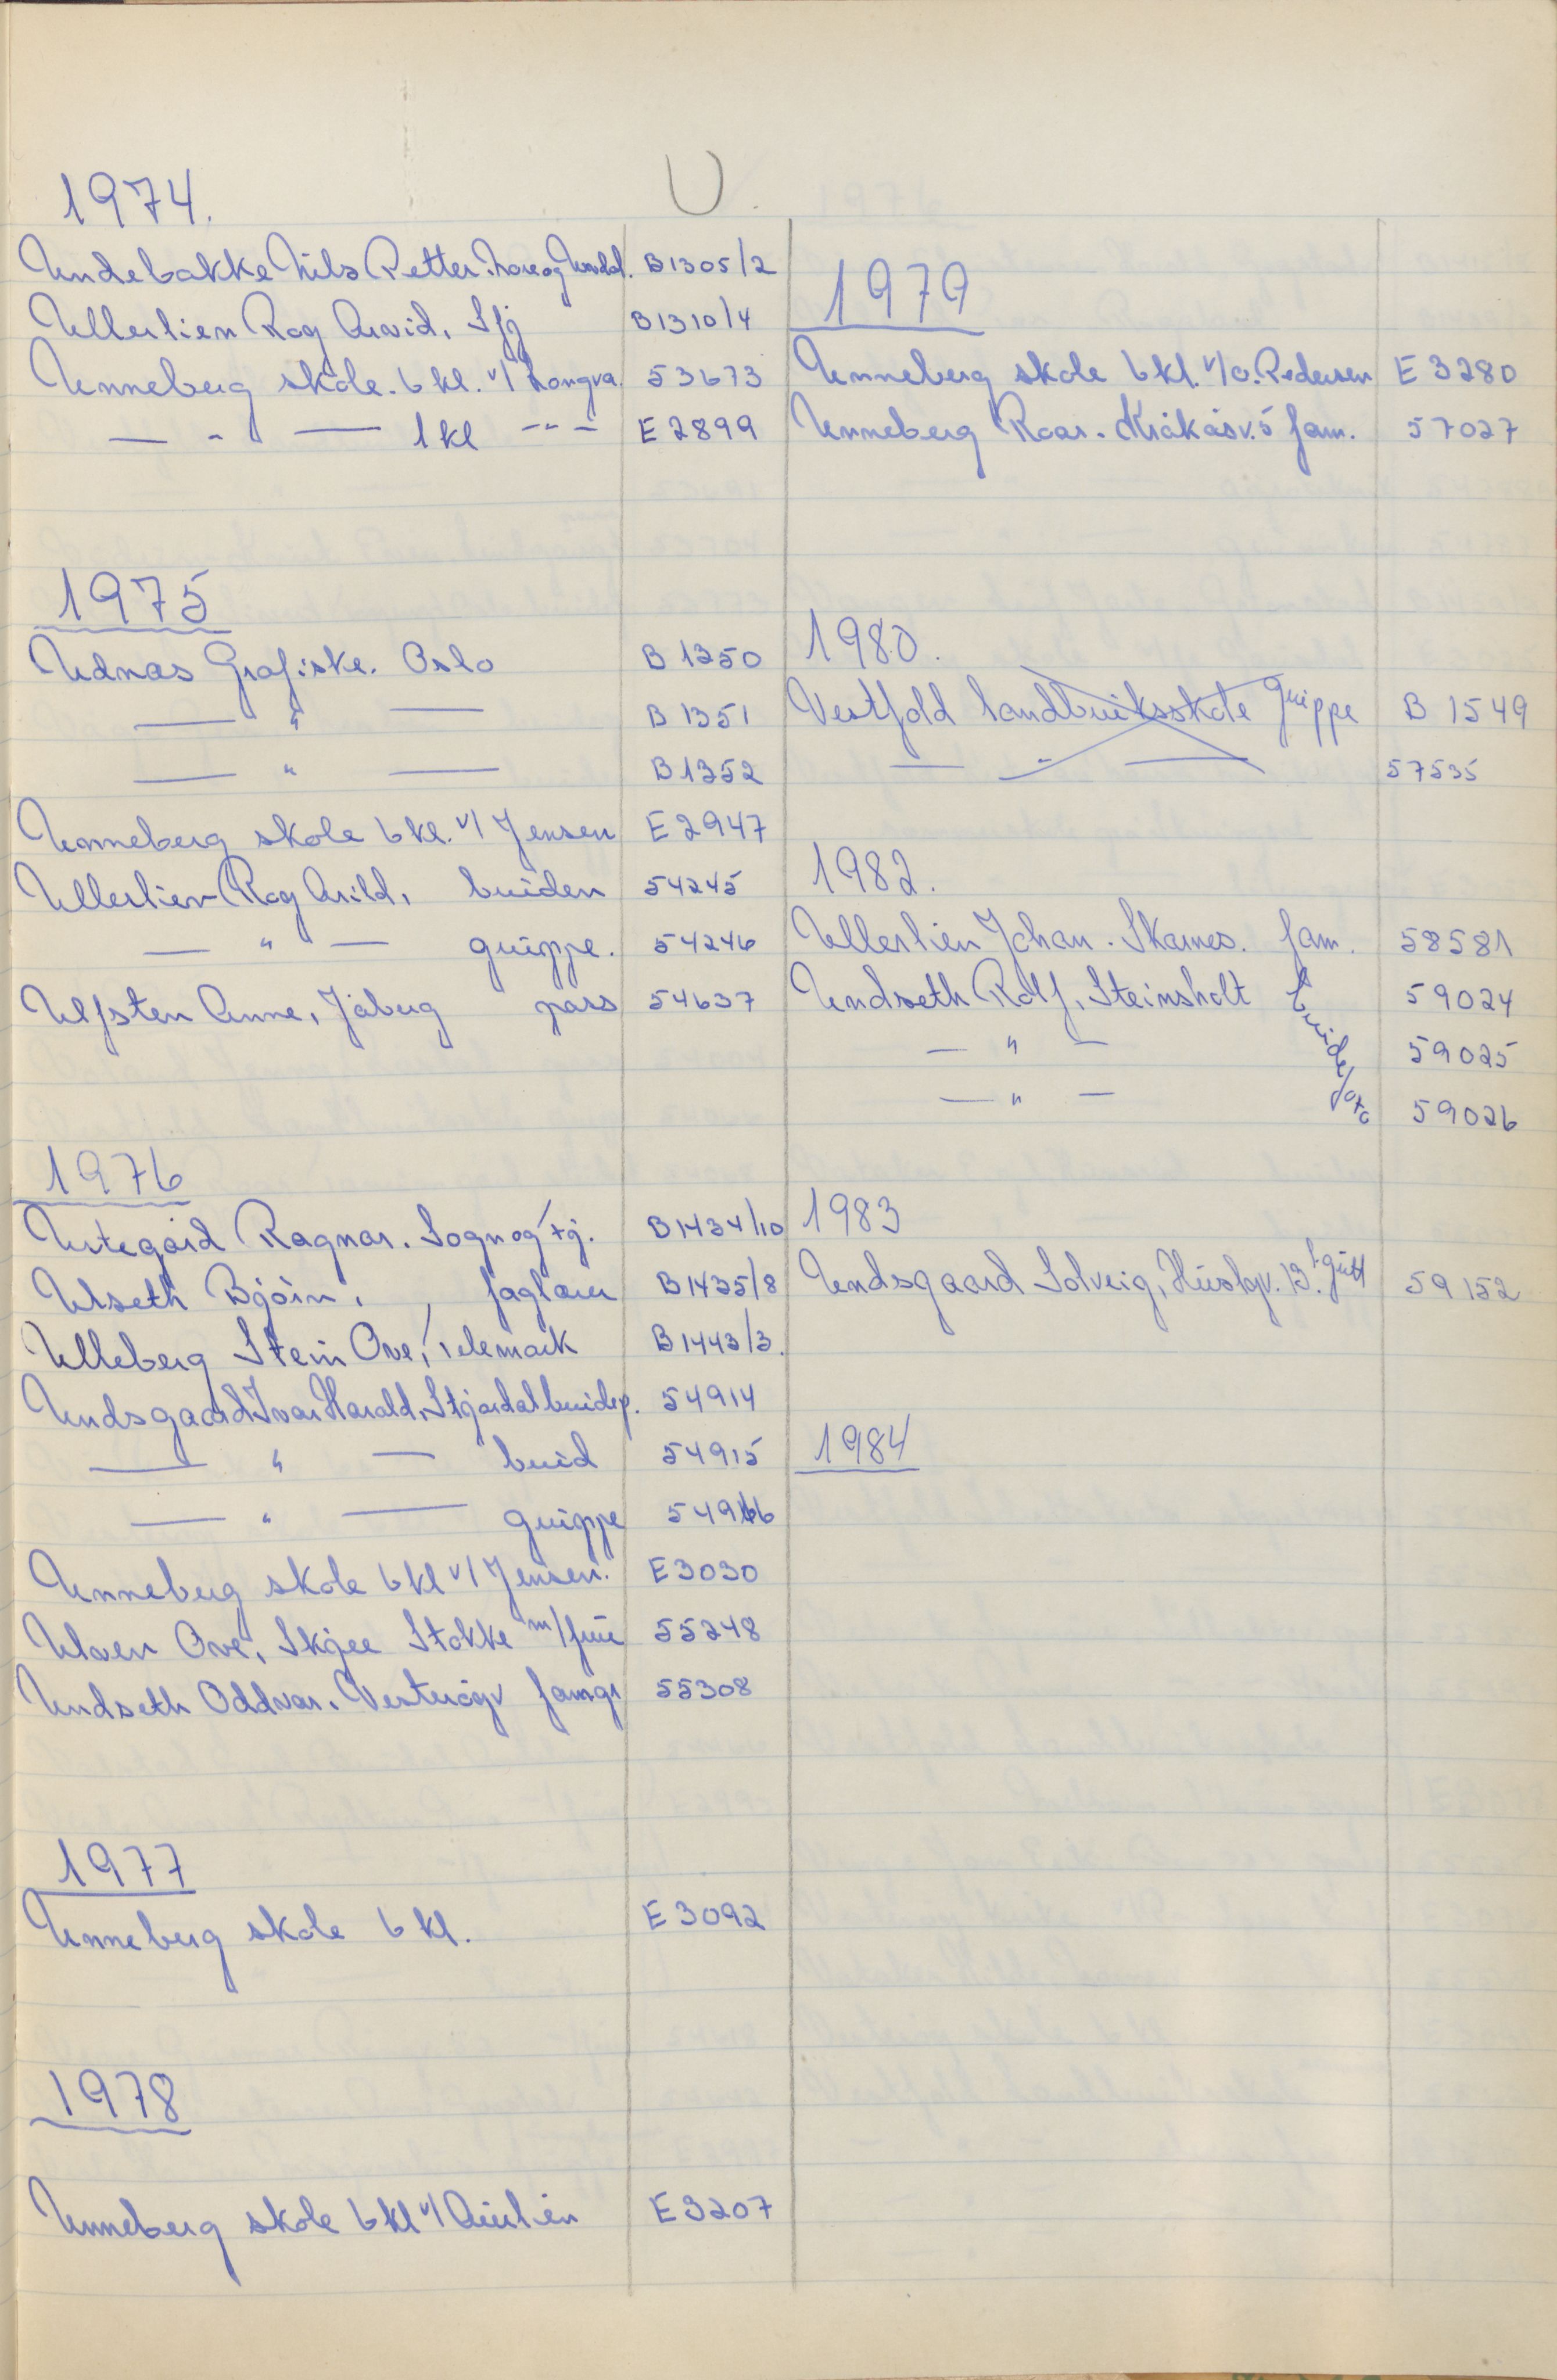 U.
1974.
Undebakke Nils Petter. Møre og Romsdal. B1305/2
Ullerlien Rog Arvid, Sfj B1310/4
Unneberg skole. 6 kl. v/ Longva. 53673
— " — 1 kl -"- E 2899
1975
Udnæs Grafiske. Oslo B 1350
— " — B 1351
— " — B 1352
Unneberg skole 6 kl. v/ Jensen E 2947
Ullerlien Rog Arild, bruden 54245
— " — gruppe. 54246
Ulfsten Anne, Jåberg pass 54637
1976
Urtegård Ragnar. Sogn og Fj. B1434/10
Ulseth Bjørn, faglærer B1435/8
Ulleberg Stein Ove, Telemark B1443/3.
Undsgaard Ivar Harald, Stjørdal brudep. 54914
— " — brud 54915
— " — gruppe 54916
Unneberg skole 6 kl v/ Jensen. E3030
Ulven Ove, Skjee Stokke m/frue 55248
Undseth Oddvar. Vesterøyv famgr 55308
1977
Unneberg skole 6 kl. E 3092
1978
Unneberg skole 6 kl v/ E 3207
1979
Unneberg skole 6 kl. v/O. Pedersen E 3280
Unneberg Roar. Kråkåsv. 5 fam. 57027
1980.
Vestfold landbruksskole gruppe B 1549
— " — 57535
1982.
Ullerlien Johan. Skarnes. fam. 58581
Undseth Rolf, Steinsholt brudefoto 59024
— " — 59025
— " — 59026
1983
Undsgaard Solveig, Huslyv. 13. 1 gutt 59152
1984